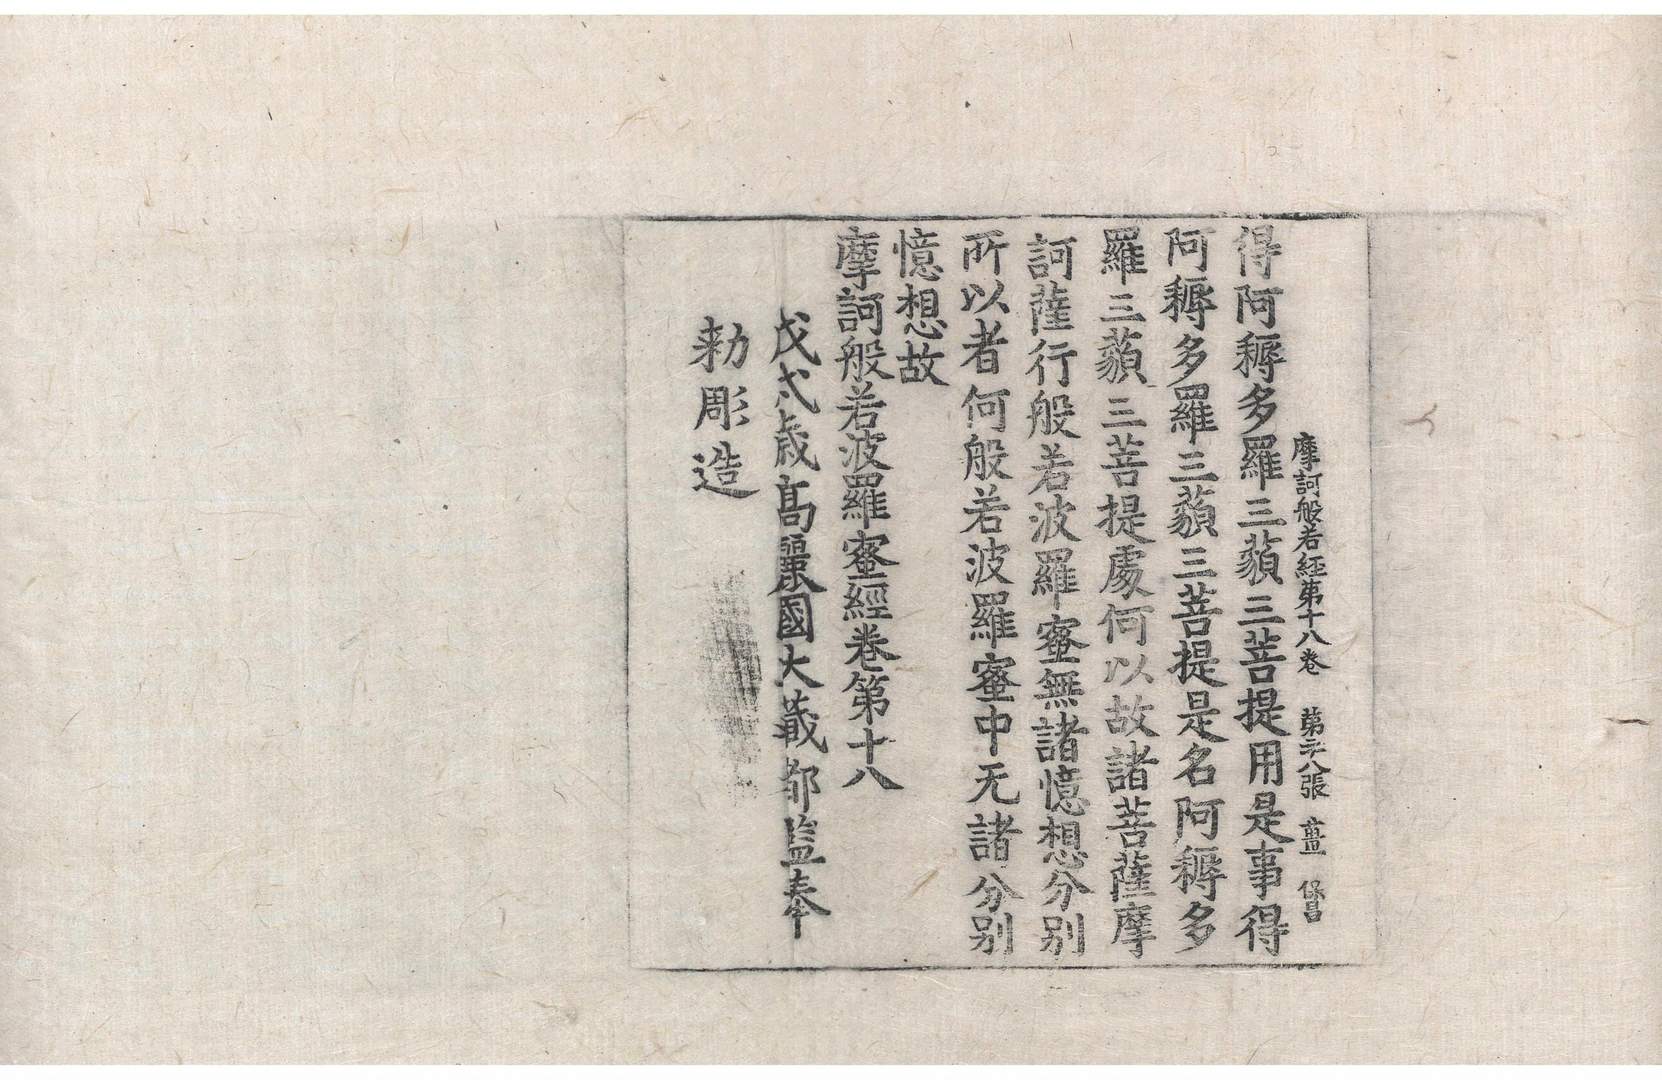 摩訶般若経第十八卷 第二八張 薑 保昌
得阿耨多羅三藐三菩提用是事得
阿耨多羅三藐三菩提是名阿耨多
羅三藐三菩提處何以故諸菩薩摩
訶薩行般若波羅蜜無諸憶想分別
所以者何般若波羅蜜中无諸分別
憶想故
摩訶般若波羅蜜經卷第十八
戊戌歲高麗國大藏都監奉
勅彫造